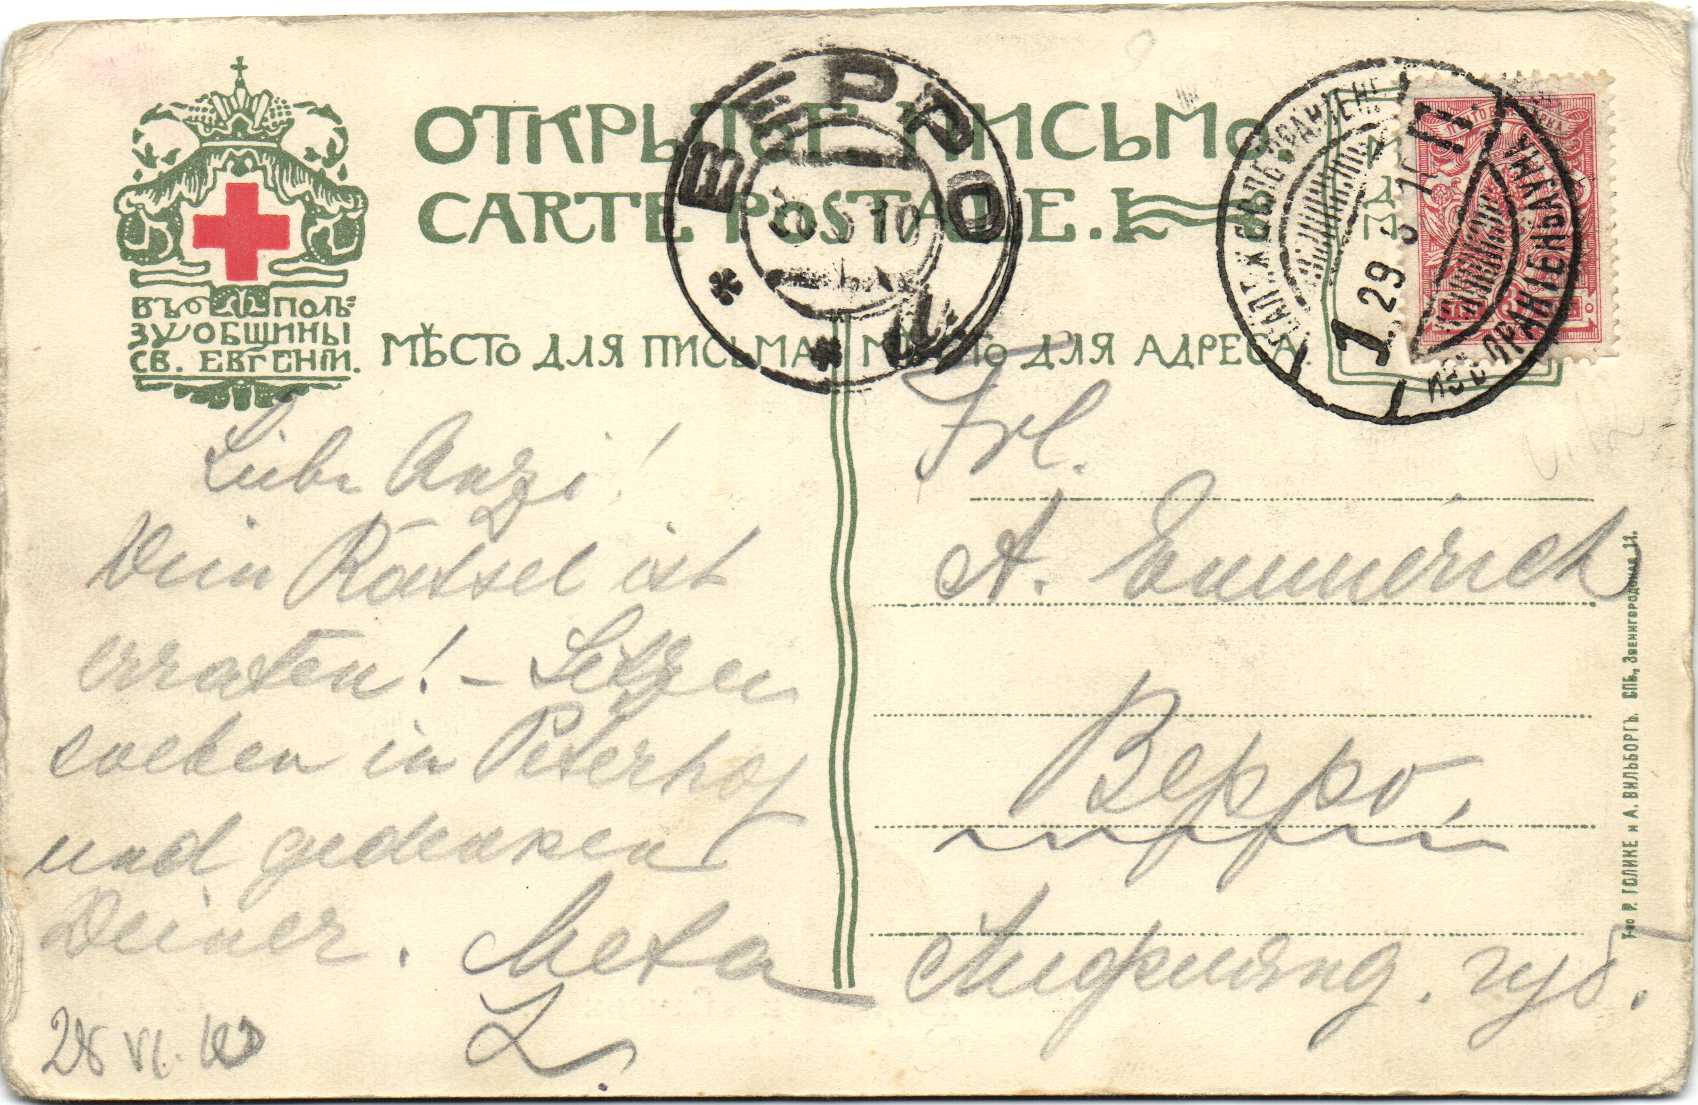 ОТКРЫТОЕ ПИСЬМО
CARTE POSTALE.
ВЪ ПОЛЬ-
ЗУ ОБЩИНЫ
СВ. ЕВГЕНІИ.
МѢСТО ДЛЯ ПИСЬМА
МѢСТО ДЛЯ АДРЕСА.
ВЕРРО
5 10
1. 29 10 П.
ОРАНІЕНБАУМЪ
Liebe Anzi!
Dein Rätsel ist
erraten! – Sitzen
soeben in Peterhof
und gedenken
Deiner. Meta
Z.
28 VI. 10
Frl.
A. Emmerich
Верро,
Лифлянд. губ.
Т-во Р. ГОЛИКЕ и А. ВИЛЬБОРГЪ. СПБ., Звенигородская, 11.